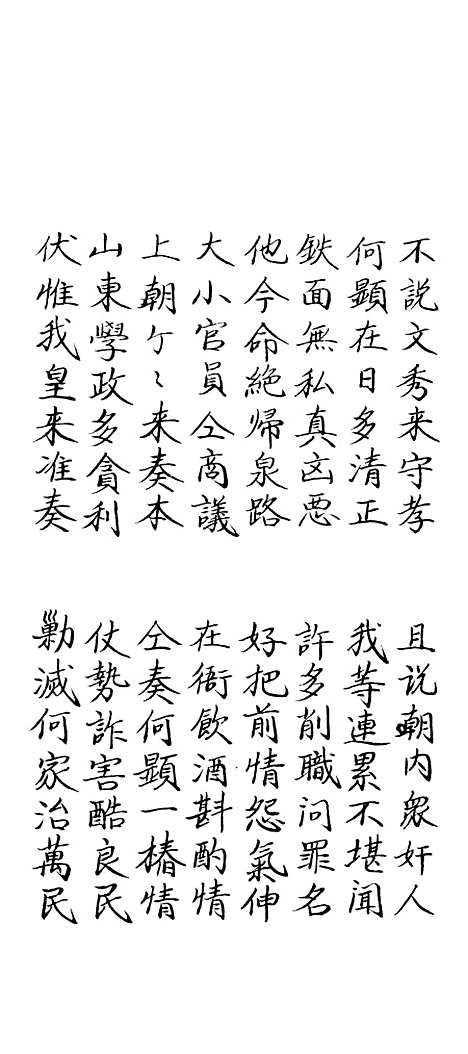 不説文秀来守孝
且说朝内衆奸人
何顕在日多清正
我等連累不堪闻
鉄面無私真凶悪
許多削職问罪名
他今命絶帰泉路
好把前情怨氣伸
大小官員仝商議
在衙飲酒斟酌情
上朝ケ〻来奏本
仝奏何顕一樁情
山東學政多貪利
仗勢詐害酷良民
伏惟我皇来准奏
勦滅何家治萬民